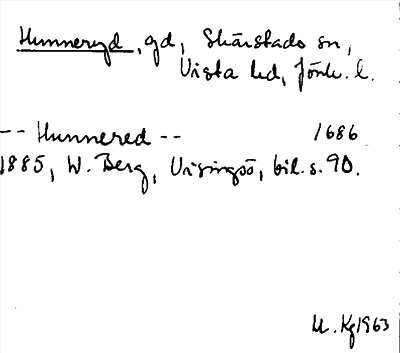 Hunneryd, gd, Skärstads sn,
Vista hd, Jönk. l.
-- Hunnered -- 1686
1885, W. Berg, Visingsö, bil. s. 90.
M. Kg 1963